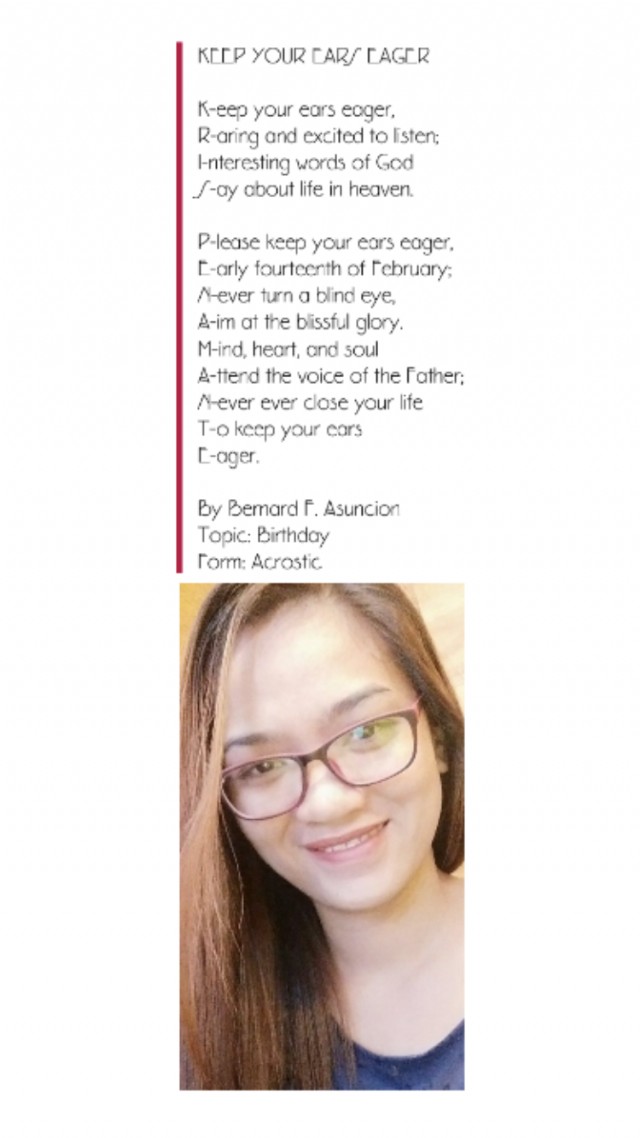 KEEP YOUR EARS EAGER
K-eep your ears eager,
R-aring and excited to listen;
I-nteresting words of God
S-ay about life in heaven.
P-lease keep your ears eager,
E-arly fourteenth of February;
N-ever turn a blind eye,
A-im at the blissful glory.
M-ind, heart, and soul
A-ttend the voice of the Father;
N-ever ever close your life
T-o keep your ears
E-ager.
By Bernard F. Asuncion
Topic: Birthday
Form: Acrostic